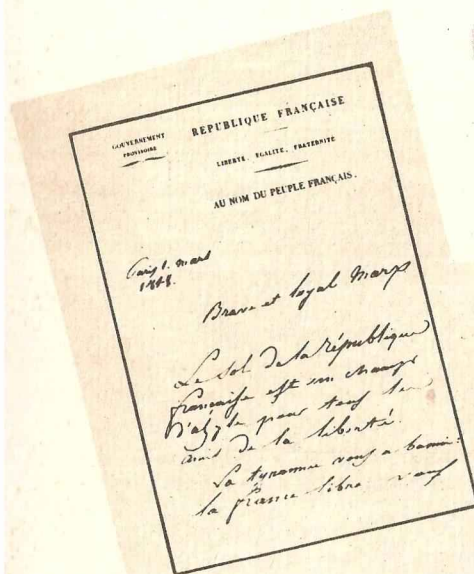 GOUVERNEMENT
PROVISOIRE
REPUBLIQUE FRANÇAISE
LIBERTÉ, EGALITÉ, FRATERNITÉ
AU NOM DU PEUPLE FRANÇAIS.
Paris 1. mars
1848.
Brave et loyal Marx
Le sol de la république
française est un champ
d'azyle pour tous les
amis de la liberté.
La tyrannie vous a banni:
la france libre vous